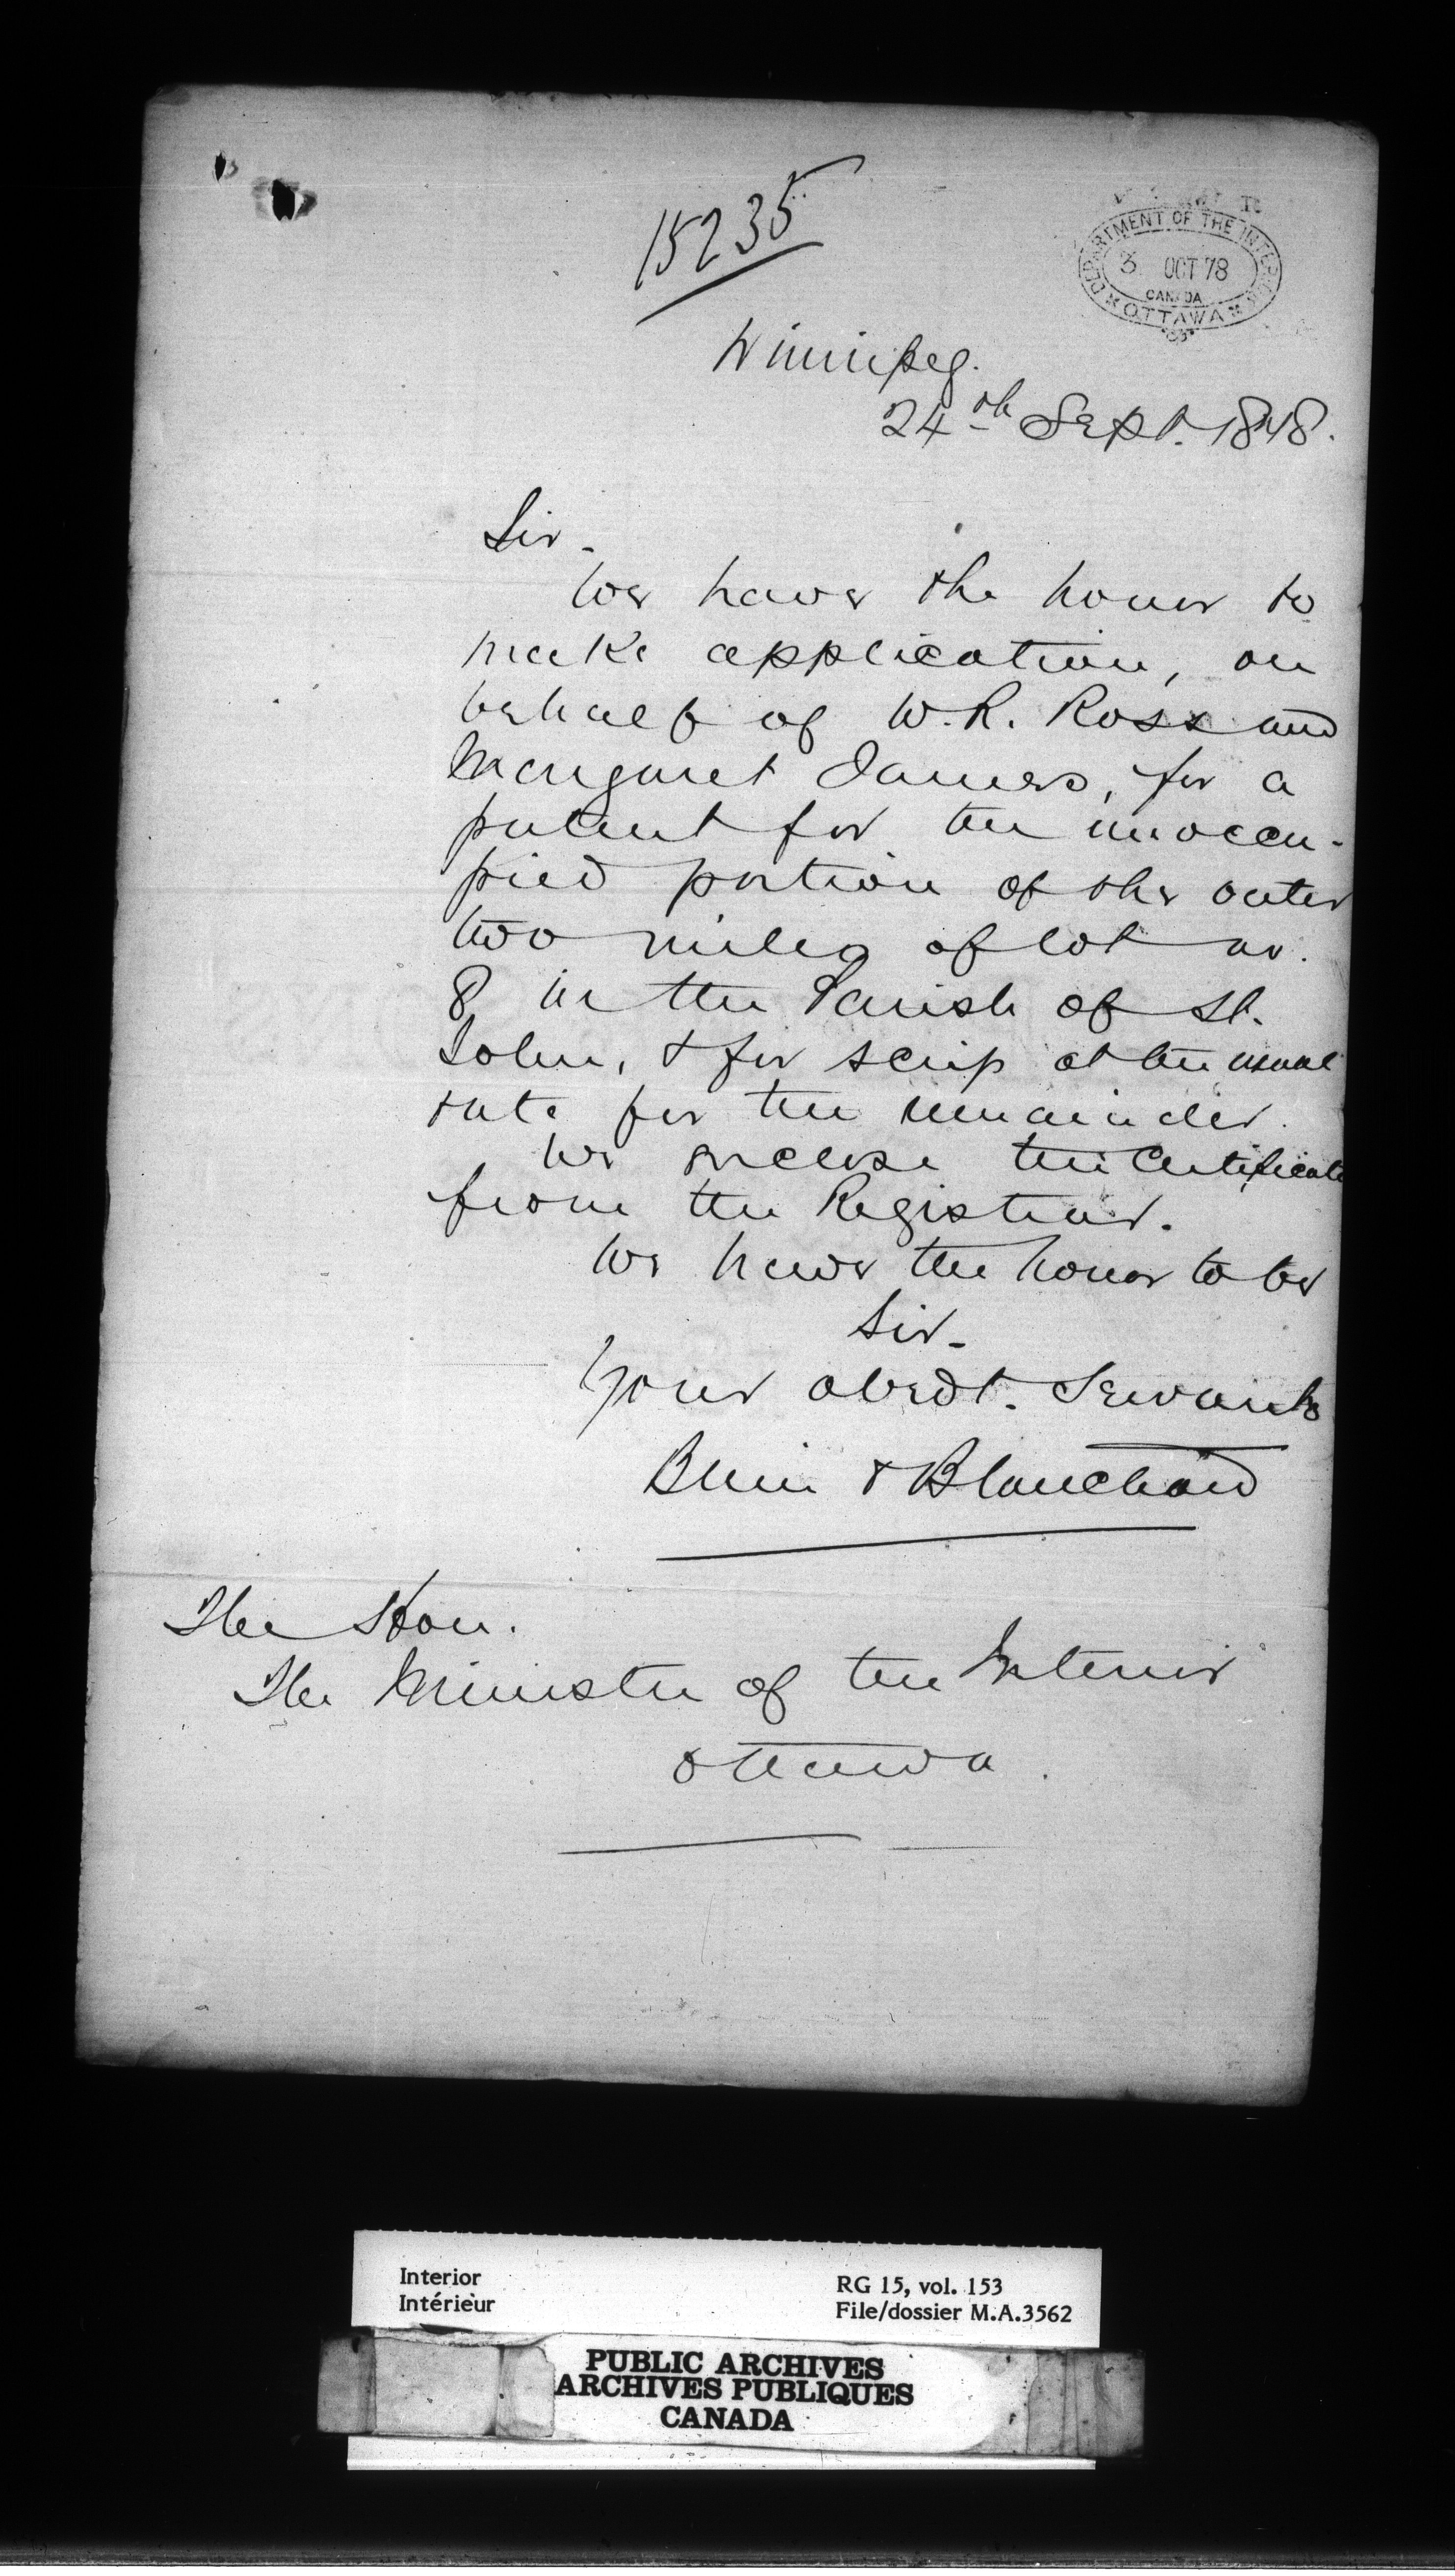 15235
DEPARTMENT OF THE INTERIOR
3 OCT 78
CANADA
OTTAWA
Winnipeg.
24th Sept. 1878.
Sir -
We have the honor to
make application, on
behalf of W. R. Ross and
Margaret James, for a
patent for the unoccu-
pied portion of the outer
two miles of lot no.
8 in the Parish of St.
John, & for scrip at the usual
rate for the remainder.
We enclose the Certificate
from the Registrar.
We have the honor to be
Sir -
Your obedt. Servants
Bain & Blanchard
The Hon.
The Minister of the Interior
Ottawa.
Interior
Intérieur
RG 15, vol. 153
File/dossier M.A.3562
PUBLIC ARCHIVES
ARCHIVES PUBLIQUES
CANADA